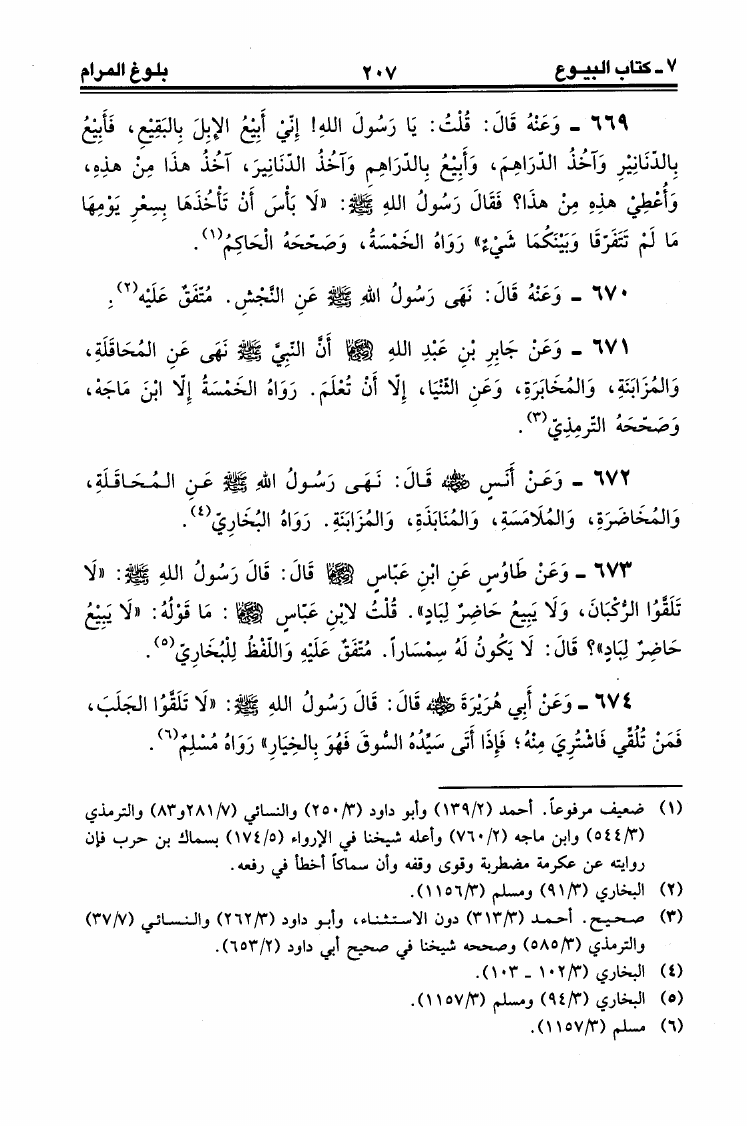 ٧ - كتاب البيوع ٢٠٧ بلوغ المرام
٦٦٩ - وَعَنْهُ قَالَ: قُلْتُ: يَا رَسُولَ اللهِ! إِنِّيْ أَبِيْعُ الإِبِلَ بِالبَقِيْعِ، فَأَبِيْعُ
بِالدَّنَانِيْرِ وَآخُذُ الدَّرَاهِمَ، وَأَبِيْعُ بِالدَّرَاهِمِ وَآخُذُ الدَّنَانِيَرَ، آخُذُ هذَا مِنْ هذِهِ،
وَأُعْطِيْ هذِهِ مِنْ هذَا؟ فَقَالَ رَسُولُ اللهِ ﷺ: «لَا بَأْسَ أَنْ تَأْخُذَهَا بِسِعْرِ يَوْمِهَا
مَا لَمْ تَتَفَرَّقَا وَبَيْنَكُمَا شَيْءٌ» رَوَاهُ الخَمْسَةُ، وَصَحَّحَهُ الْحَاكِمُ(١).
٦٧٠ - وَعَنْهُ قَالَ: نَهَى رَسُولُ اللهِ ﷺ عَنِ النَّجْشِ. مُتَّفَقٌ عَلَيْهِ(٢).
٦٧١ - وَعَنْ جَابِرِ بْنِ عَبْدِ اللهِ رضي الله عنهما أَنَّ النَّبِيَّ ﷺ نَهَى عَنِ المُحَاقَلَةِ،
وَالمُزَابَنَةِ، وَالمُخَابَرَةِ، وَعَنِ الثُّنْيَا، إِلَّا أَنْ تُعْلَمَ. رَوَاهُ الخَمْسَةُ إِلَّا ابْنَ مَاجَهْ،
وَصَحَّحَهُ التِّرمِذِيّ(٣).
٦٧٢ - وَعَنْ أَنَسٍ رضي الله عنه قَالَ: نَهَى رَسُولُ اللهِ ﷺ عَنِ المُحَاقَلَةِ،
وَالمُخَاضَرَةِ، وَالمُلَامَسَةِ، وَالمُنَابَذَةِ، وَالمُزَابَنَةِ. رَوَاهُ البُخَارِيّ(٤).
٦٧٣ - وَعَنْ طَاوُسٍ عَنِ ابْنِ عَبَّاسٍ رضي الله عنهما قَالَ: قَالَ رَسُولُ اللهِ ﷺ: «لَا
تَلَقَّوُا الرُّكْبَانَ، وَلَا يَبِيعُ حَاضِرٌ لِبَادٍ». قُلْتُ لابْنِ عَبَّاسٍ رضي الله عنهما: مَا قَوْلُهُ: «لَا يَبِيْعُ
حَاضِرٌ لِبَادٍ»؟ قَالَ: لَا يَكُونُ لَهُ سِمْسَاراً. مُتَّفَقٌ عَلَيْهِ وَاللَّفْظُ لِلْبُخَارِيّ(٥).
٦٧٤ - وَعَنْ أَبِي هُرَيْرَةَ رضي الله عنه قَالَ: قَالَ رَسُولُ اللهِ ﷺ: «لَا تَلَقَّوُا الجَلَبَ،
فَمَنْ تُلُقِّي فَاشْتُرِيَ مِنْهُ؛ فَإِذَا أَتَى سَيِّدُهُ السُّوقَ فَهُوَ بِالخِيَارِ» رَوَاهُ مُسْلِمٌ(٦).
(١) ضعيف مرفوعاً. أحمد (١٣٩/٢) وأبو داود (٢٥٠/٣) والنسائي (٢٨١/٧و٨٣) والترمذي
(٥٤٤/٣) وابن ماجه (٧٦٠/٢) وأعله شيخنا في الإرواء (١٧٤/٥) بسماك بن حرب فإن
روايته عن عكرمة مضطربة وقوى وقفه وأن سماكاً أخطأ في رفعه.
(٢) البخاري (٩١/٣) ومسلم (١١٥٦/٣).
(٣) صحيح. أحمد (٣١٣/٣) دون الاستثناء، وأبو داود (٢٦٢/٣) والنسائي (٣٧/٧)
والترمذي (٥٨٥/٣) وصححه شيخنا في صحيح أبي داود (٦٥٣/٢).
(٤) البخاري (١٠٢/٣ - ١٠٣).
(٥) البخاري (٩٤/٣) ومسلم (١١٥٧/٣).
(٦) مسلم (١١٥٧/٣).